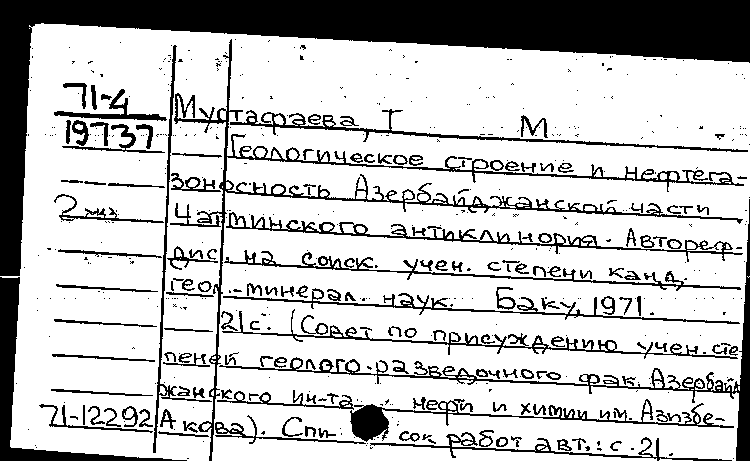 71-4
19737
Мустафаева, Г М
Геологическое строение и нефтега-
зоносность Азербайджанской части
2 экз
Чатминского антиклинория. Автореф.
дис. на соиск. учен. степени канд.
геол.-минерал. наук. Баку, 1971.
21с. (Совет по присуждению учен. сте-
пеней геолого-разведочного фак. Азербайд-
жанского ин-та нефти и химии им. Азизбе-
71-12292
кова). Спи сок работ авт.: с. 21.